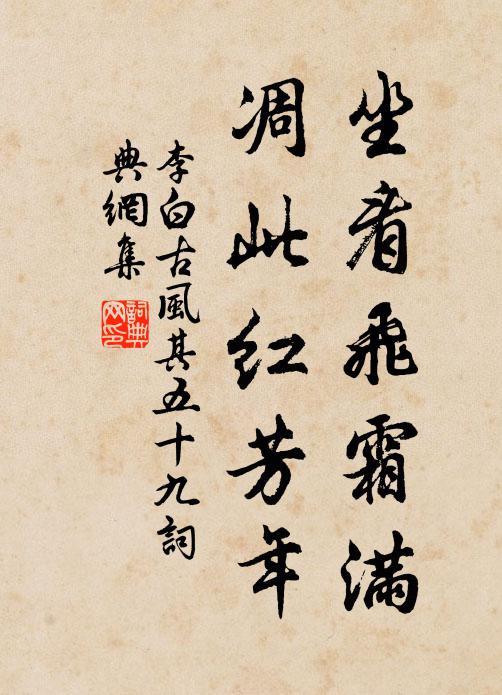 坐看飛霜滿
凋此紅芳年
李白古風其五十九詞
典網集
詞典
网印